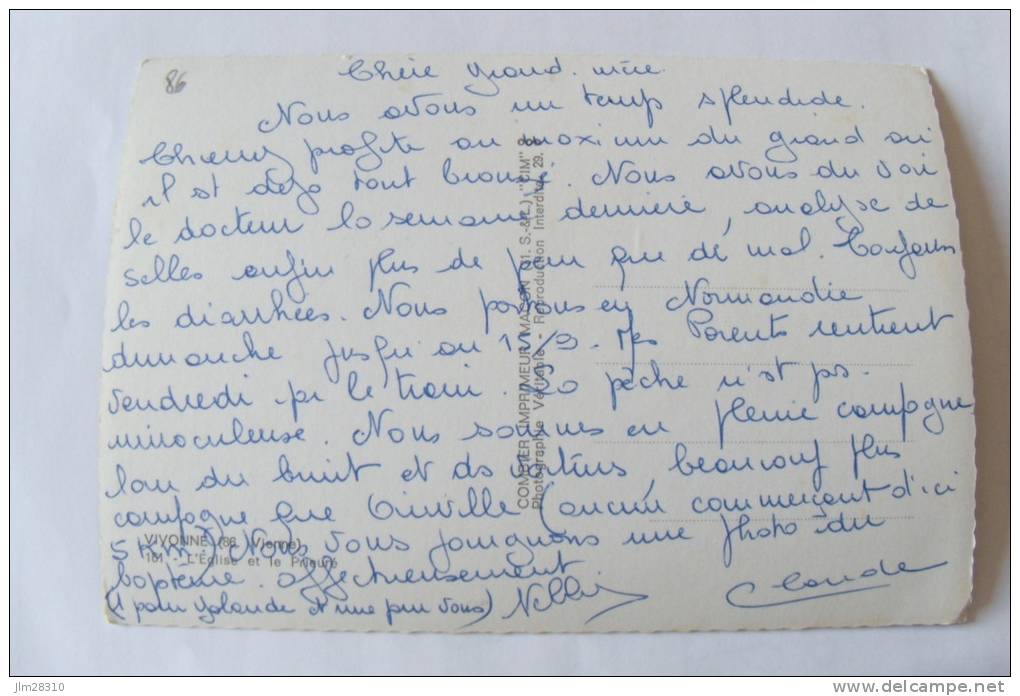 86
Chère grand. mère.
Nous avons un temps splendide.
profite au maximum du grand air
il est déjà tout bronzé. Nous avons du voir
le docteur la semaine dernière, analyse de
selles enfin plus de peur que de mal. Toujours
les diarrhées. Nous partons en Normandie
dimanche jusqu'au 11/9. Mes Parents rentrent
vendredi par le train. La pêche n'est pas
miraculeuse. Nous sommes en pleine campagne
loin du bruit et des voitures, beaucoup plus
campagne que (aucun commerçant d'ici
5 km.) Nous vous joignons une photo du
baptême. affectueusement
(1 pour Yolande et une pour vous) Claude
COMBIER IMPRIMEUR MACON (71. S.-&-L.) "CIM"
Photographie Véritable - Reproduction Interdite
VIVONNE (86. Vienne)
161 - L'Eglise et le Prieuré
jlm28310
www.delcampe.net